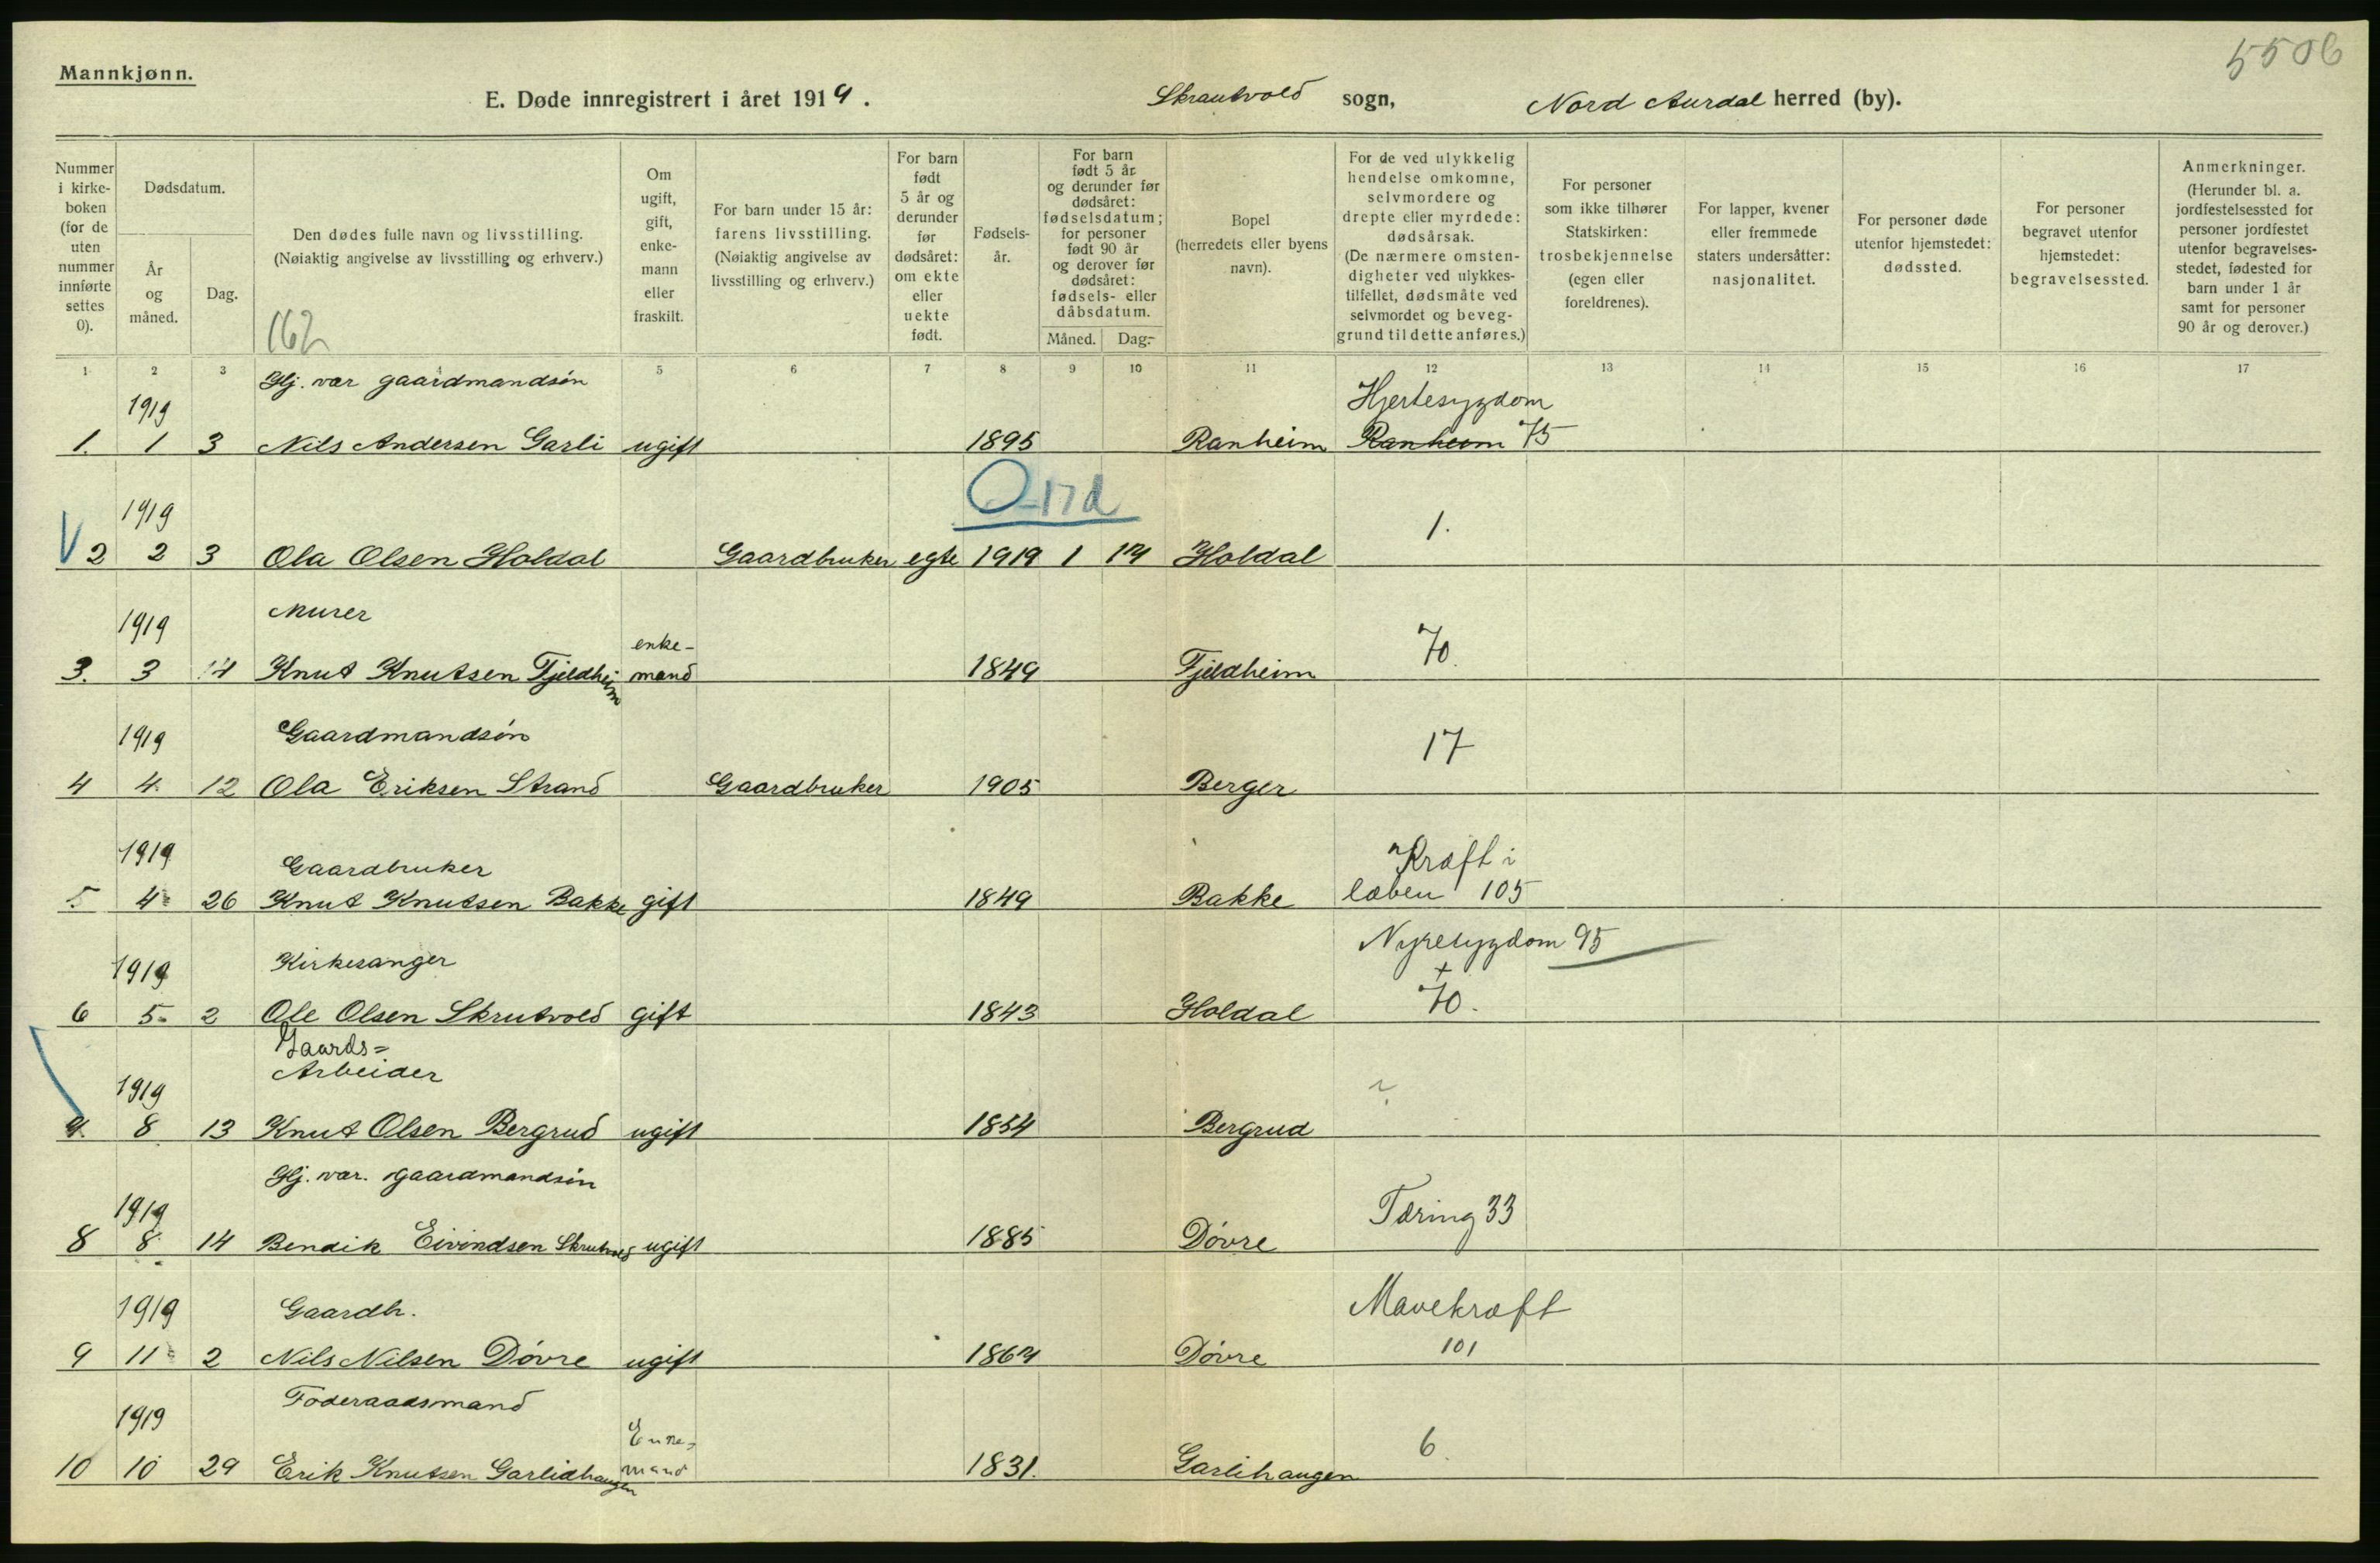 5506
Mannkjønn.
E. Døde innregistrert i året 1919. Skrautvold sogn, Nord Aurdal herred (by).
Nummer i kirke-boken (for de uten nummer innførte settes 0).
Dødsdatum.
År og måned.
Dag.
Den dødes fulle navn og livsstilling.
(Nøiaktig angivelse av livsstilling og erhverv.)
162
Om ugift, gift, enke-mann eller fraskilt.
For barn under 15 år: farens livsstilling. (Nøiaktig angivelse av livsstilling og erhverv.)
For barn født 5 år og derunder før dødsåret: om ekte eller uekte født.
Fødsels-år.
For barn født 5 år og derunder før dødsåret: fødselsdatum; for personer født 90 år og derover før dødsåret: fødsels- eller dåbsdatum.
Måned. Dag.
Bopel (herredets eller byens navn).
For de ved ulykkelig hendelse omkomne, selvmordere og drepte eller myrdede: dødsårsak. (De nærmere omsten-digheter ved ulykkes-tilfellet, dødsmåte ved selvmordet og beveg-grund til dette anføres.)
For personer som ikke tilhører Statskirken: trosbekjennelse (egen eller foreldrenes).
For lapper, kvener eller fremmede staters undersåtter: nasjonalitet.
For personer døde utenfor hjemstedet: dødssted.
For personer begravet utenfor hjemstedet: begravelsessted.
Anmerkninger. (Herunder bl. a. jordfestelsessted for personer jordfestet utenfor begravelses-stedet, fødested for barn under 1 år samt for personer 90 år og derover.)
1 2 3 4 5 6 7 8 9 10 11 12 13 14 15 16 17
Hj. vær gaardmandsøn
1919 Hjertesygdom
1. 1 3 Nils Andersen Garli ugift 1895 Ranheim Ranheim 75
0-17d
1919 1.
V 2 2 3 Ola Olsen Holdal Gaardbruker egte 1919 1 14 Holdal
1919 Murer enke- 70
3. 3 14 Knut Knutsen Fjeldheim mand 1849 Fjeldheim
1919 Gaardmandsøn 17
4 4 12 Ola Eriksen Strand Gaardbruker 1905 Berger
1919 Gaardbruker Kræft i
5. 4 26 Knut Knutsen Bakke gift 1849 Bakke læben 105
Nyresygdom 95
1919 Kirkesanger +
6 5 2 Ole Olsen Skrutvold gift 1843 Holdal 70.
Gaards=
1919 Arbeider
8 13 Knut Olsen Bergrud ugift 1854 Bergrud
Hj. vær. gaardmandsøn
1919 Tæring 33
8 8 14 Bendik Eivindsen Skrutvold ugift 1885 Døvre
1919 Gaardb. Mavekræft
9 11 2 Nils Nilsen Døvre ugift 1864 Døvre 101
Føderaadsmand
1919 Enke- 6
10 10 29 Erik Knutsen Garlidhaugen mand 1831. Garlihaugen